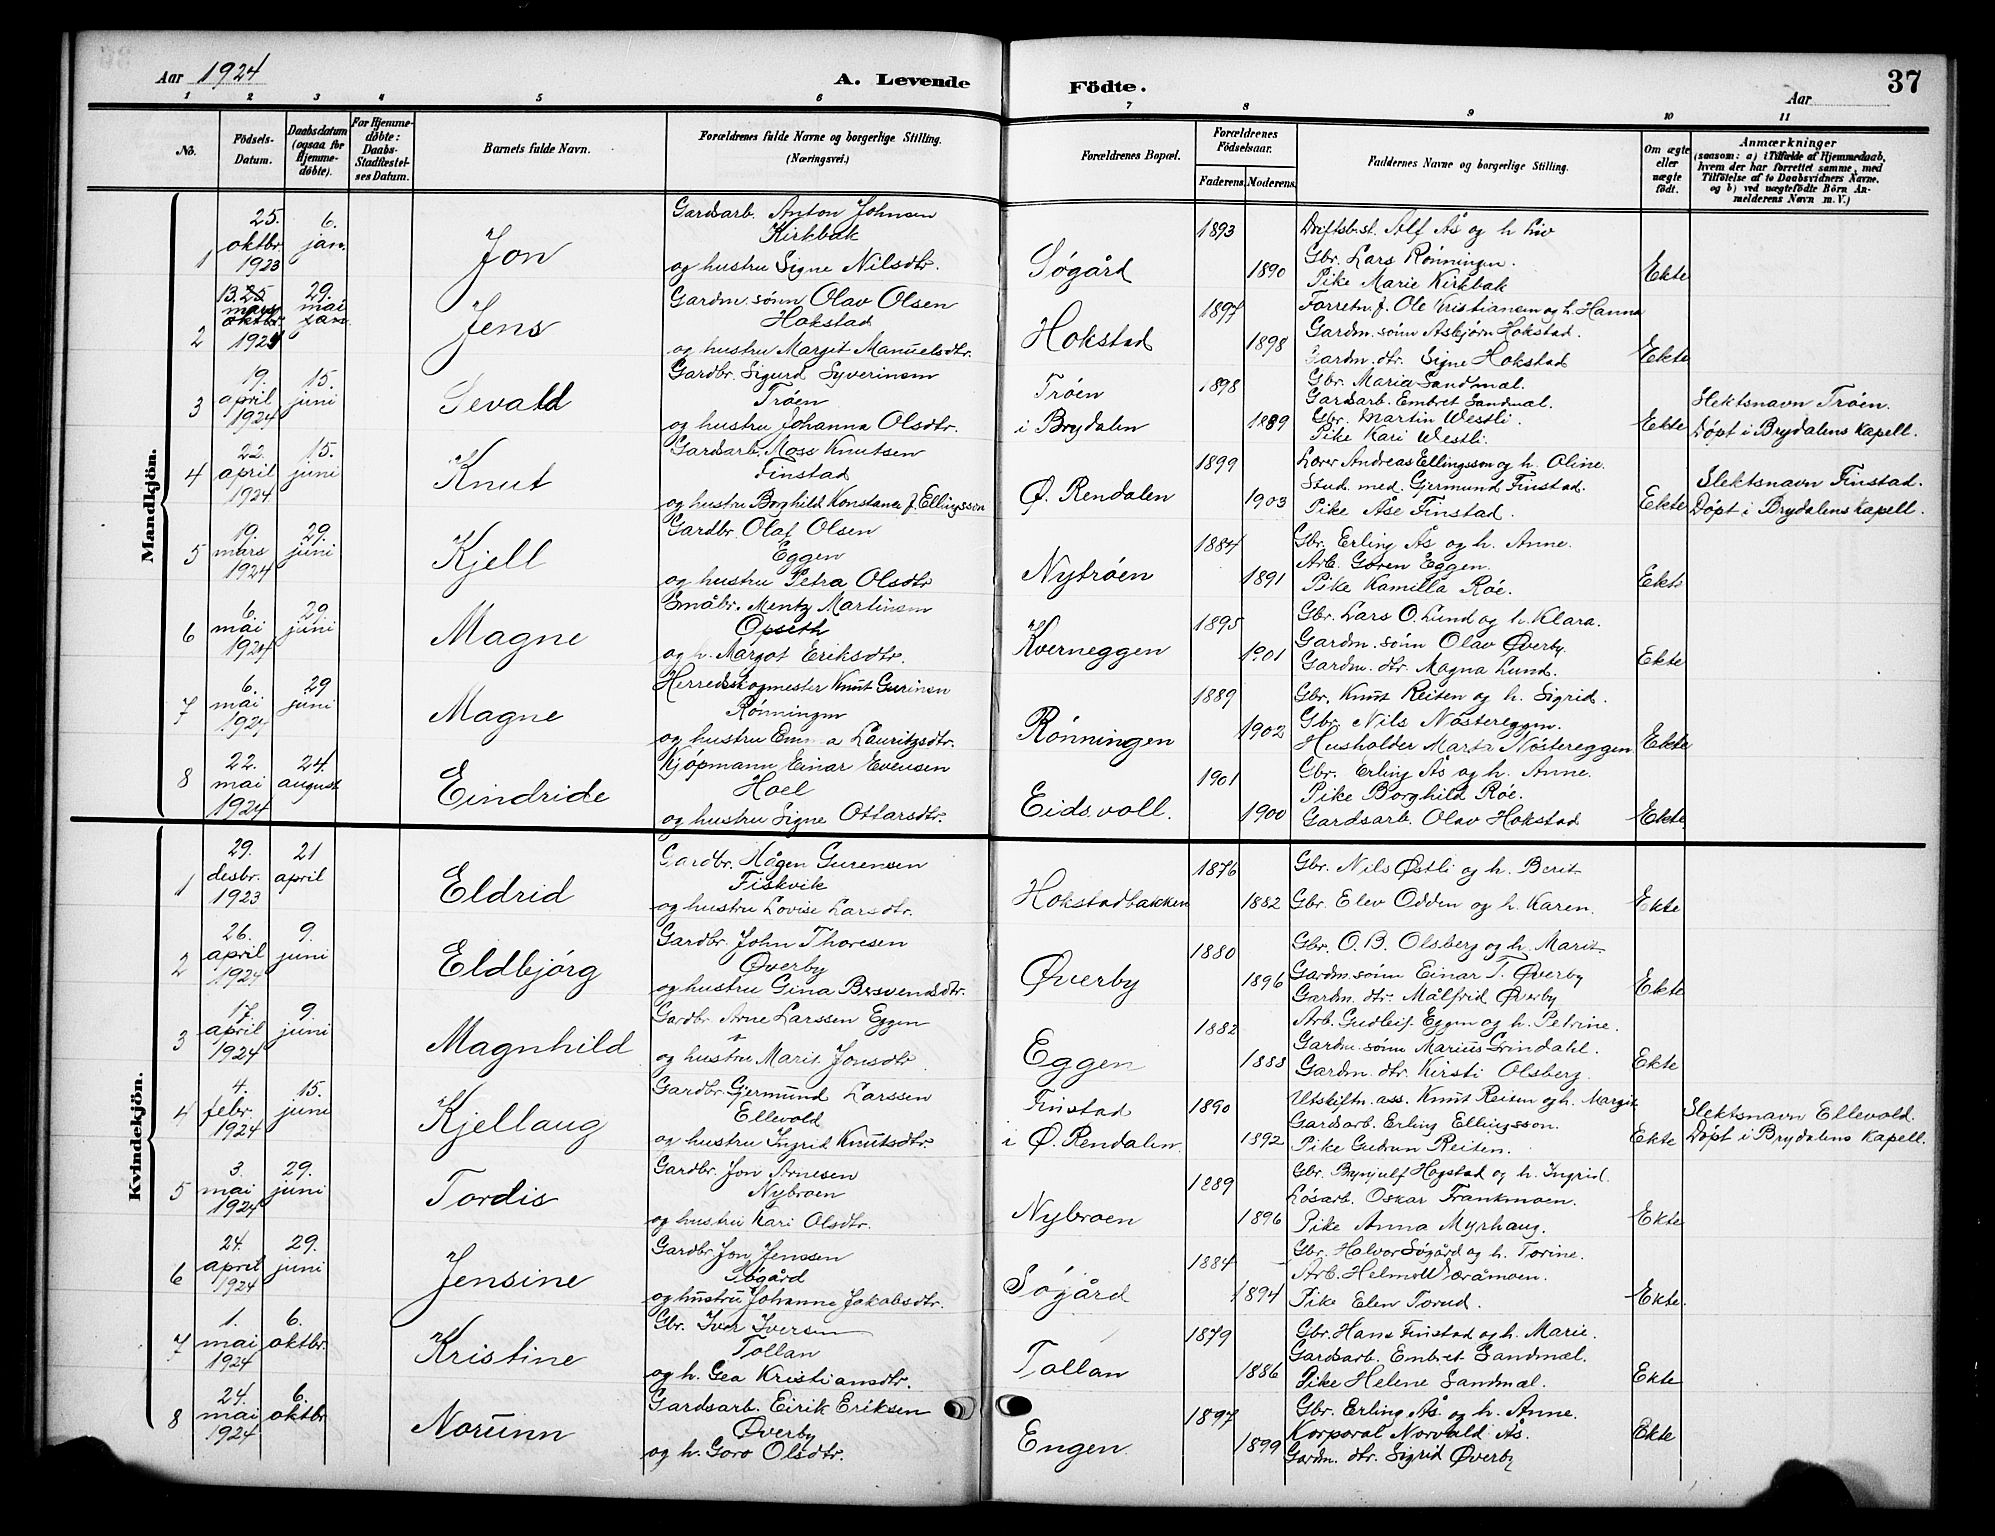 Aar 1924
A. Levende Födte.
37
Aar
1 2 3 4 5 6 7 8 9 10 11
No.
Födsels-Datum.
Daabsdatum (ogsaa for Hjemmedøbte).
For Hjemmedøbte: Daabs-Stadfæstelses Datum.
Barnets fulde Navn.
Forældrenes fulde Navne og borgerlige Stilling. (Næringsvei.)
Forældrenes Bopæl.
Forældrenes Födselsaar.
Faderens. Moderens.
Faddernes Navne og borgerlige Stilling.
Om ægte eller uægte födt.
Anmærkninger (saasom: a) i Tilfælde af Hjemmedaab, hvem der har forrettet samme, med Tilföielse af to Daabsvidners Navne, og b) ved uægtefödte Börn Anmelderens Navn m. V.)
Mandkjön.
1 25. oktbr. 1923 6. jan. Jon
Gardsarb. Anton Johnsen
Kirkbak
og hustru Signe Nilsdtr.
Søgård 1893 1890
Driftsbst. Alf Ås og h. Liv
Gbr. Lars Rønningen.
Pike Marie Kirkbak
Ekte
2 13. 25. mars oktbr. 1924 29. mai jan. Jens
Gardm. sønn Olav Olsen
Hokstad
og hustru Margit Manuelsdtr.
Hokstad 1897 1898
Forretn.f. Ole Kristiansen og h. Hanna
Gardm. sønn Asbjørn Hokstad.
Gardm. dtr. Signe Hokstad
Ekte
3 19. april 1924 15. juni Sevald
Gardbr. Sigurd Syverinsen
Trøen
og hustru Johanna Olsdtr.
Trøen
i Brydalen 1898 1889
Gbr. Maria Sandmæl.
Gardsarb. Embret Sandmæl.
Gbr. Martin Westli.
Pike Kari Westli.
Ekte
Slektsnavn Trøen.
Døpt i Brydalens Kapell.
4 22. april 1924 15. juni Knut
Gardsarb. Moss Knutsen
Finstad
og hustru Borghild Konstance f. Ellingsson
Ø. Rendalen 1899 1903
Lærer Andreas Ellingsson og h. Oline.
Stud. med. Gjermund Finstad.
Pike Åse Finstad.
Ekte
Slektsnavn Finstad.
Døpt i Brydalens Kapell.
5 19. mars 1924 29. juni Kjell
Gardbr. Olaf Olsen
Eggen
og hustru Petra Olsdtr
Nytrøen 1884 1891
Gbr. Erling Ås og h. Anne.
Arb. Gøren Eggen.
Pike Kamilla Røe.
Ekte
6 6. mai 1924 29. juni Magne
Småbr. Mentz Martinsen
Opseth
og h. Margot Eriksdtr.
Kverneggen 1895 1901
Gbr. Lars O. Lund og h. Klara.
Gardm. sønn Olav Øverby.
Gardm. dtr. Magna Lund.
Ekte
7 6. mai 1924 29 juni Magne
Herredskogmester Knut Gurinsen
Rønningen
og hustru Emma Lauritzsdtr.
Rønningen 1889 1902
Gbr. Knut Reiten og h. Sigrid.
Gbr. Nils Nøstereggen.
Husholder Marta Nøstereggen
Ekte
8 22. mai 1924 24. august Eindride
Kjøpmann Einar Evensen
Hoel
og hustru Signe Ottarsdtr.
Eidsvoll. 1901 1900
Gbr. Erling Ås og h. Anne.
Pike Borghild Røe.
Gardsarb. Olav Hokstad
Ekte.
Kvindekjön.
1 29. desbr. 1923 21 april Eldrid
Gardbr. Hågen Gurensen
Fiskvik
og hustru Lovise Larsdtr.
Hokstadbakken 1876 1882
Gbr. Nils Østli og h. Berit
Gbr. Elev Odden og h. Karen.
Ekte
2 26. april 1924 9. juni Eldbjørg
Gardbr. John Thoresen
Øverby
og hustru Gina Besvendsdtr.
Øverby 1880 1896
Gbr. O. B. Olsberg og h. Marit
Gardm. sønn Einar T. Øverby
Gardm. dtr. Målfrid Øverby
Ekte
3 17. april 1924 9. juni Magnhild
Gardbr. Arne Larssen Eggen
og hustru Marit Jonsdtr.
Eggen 1882 1888
Arb. Gudleif Eggen og h. Petrine.
Gardm. sønn Marius Grindahl.
Gardm. dtr. Kirsti Olsberg.
Ekte
4 4. febr. 1924 15. juni Kjellaug
Gardbr. Gjermund Larssen
Ellevold
og hustru Ingrit Knutsdtr.
Finstad
i Ø. Rendalen. 1890 1892
Utskiftn. ass. Knut Reiten og h. Margit
Gardsarb. Erling Ellingsson.
Pike Gudrun Reiten.
Ekte
Slektsnavn Ellevold.
Døpt i Brydalens Kapell.
5 3. mai 1924 29. juni Tordis
Gardbr. Jon Arnesen
Nybroen
og hustru Kari Olsdtr.
Nybroen 1889 1896
Gbr. Brynjulf Hogstad og h. Ingrid.
Løsarb. Oskar Frankmoen.
Pike Anna Myrhaug.
Ekte
6 24. april 1924 29. juni Jensine
Gardbr. Jon Jenssen
Søgård
og hustru Johanne Jakobsdtr.
Søgård 1884 1894
Gbr. Halvor Søgård og h. Torine.
Arb. Helmer Øråmoen.
Pike Elen Torud.
Ekte.
7 1. mai 1924 6. oktbr. Kristine
Gbr. Iver Iversen
Tollan
og h. Gea Kristiansdtr.
Tollan 1879 1886
Gbr. Hans Finstad og h. Marie.
Gardsarb. Embret Sandmæl.
Pike Helene Sandmæl.
Ekte
8 24. mai 1924 6. oktbr. Norunn
Gardsarb. Eirik Eriksen
Øverby
og h. Goro Olsdtr.
Engen 1897 1899
Gbr. Erling Ås og h. Anne.
Korporal Norvald Ås.
Gardm. dtr. Sigrid Øverby
Ekte